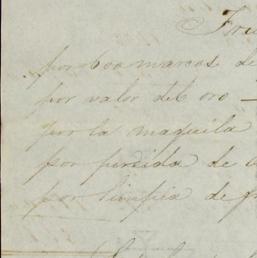 por 600 marcos de
por valor del oro —
por la maquila
por perdida de
por limpia de